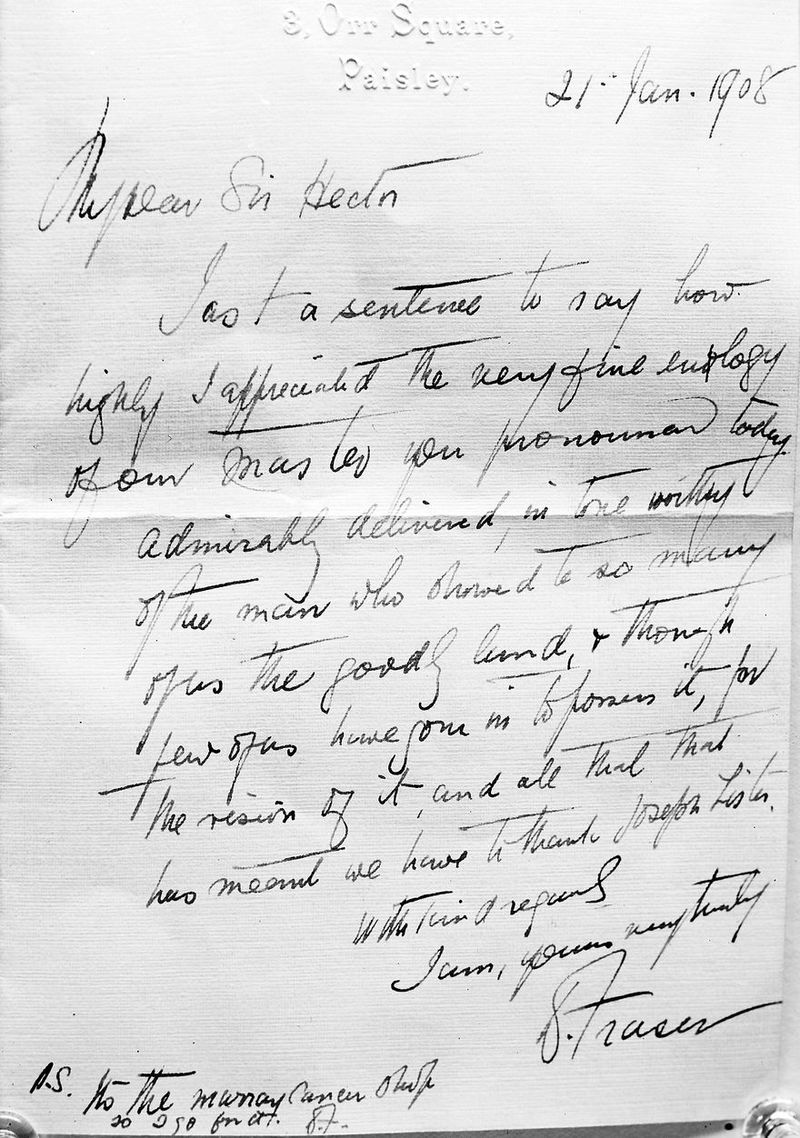 3, Orr Square,
Paisley.
21st Jan. 1908
My dear Sir Hector
Just a sentence to say how
highly I appreciated the very fine eulology
of our Master you pronounced today.
Admirably delivered, in tone worthy
of the man who showed to so many
of us the goodly land, & though
few of us have gone in to possess it, for
the vision of it, and all that that
has meant we have to thank Joseph Lister.
With kind regards
I am, yours very truly
D. Fraser
P.S. the
so I go for it. D.F.